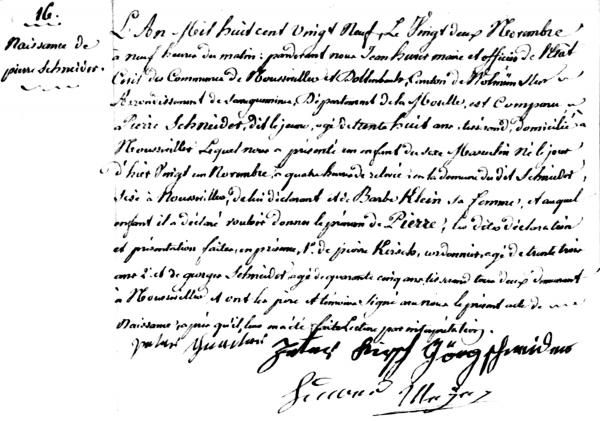 16.
Naissance de
pierre Schneider.
L'An Mil huit cent vingt Neuf, Le Vingt deux Novembre
à neuf heures du matin; pardevant nous Jean maire et officier de l'Etat
Civil des Communes de Nousseviller et Canton de Volmünster
Arrondissement de Sarreguemines, Département de la Moselle, est Comparu
Pierre Schneider, dit le jeune, agé de trente huit ans tisserand, domicilié à
Nousseviller Lequel nous a présenté un enfant du sexe Masculin né le jour
d'hier Vingt un Novembre, à quatre heures de relevée en la demeure du dit Schneider,
sise à Nousseviller, de lui déclarant et de Barbe Klein sa femme, et auquel
enfant il a déclaré vouloir donner le prénom de Pierre; les dites déclaration
et présentation faites, en présence, 1°. de pierre Kirsch, cordonnier, agé de trente trois
ans 2°. et de george Schneider agé de quarante cinq ans, tisserand tous deux demeurant
à Nousseviller et ont les père et témoins signé avec nous le présent acte de
Naissance après qu'il leur en a été faite Lecture par interprétation.
Peter Kirsch Görg schneider